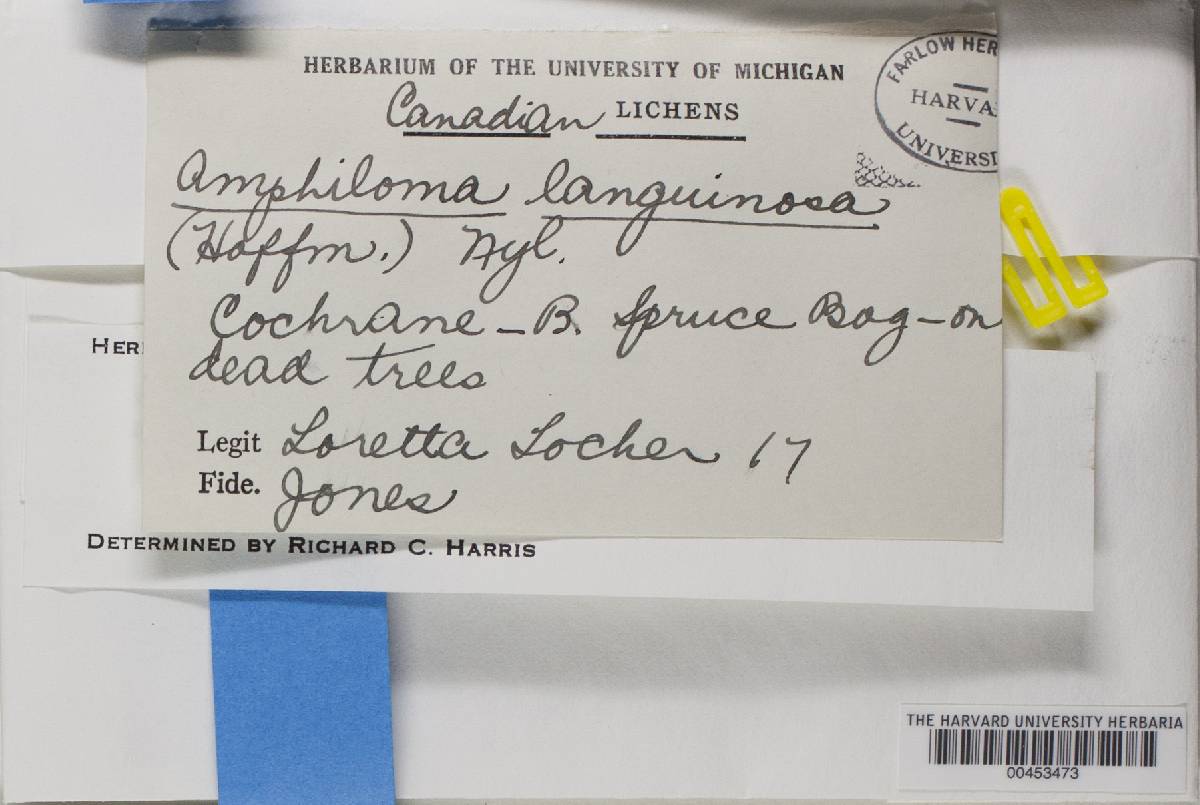 HERBARIUM OF THE UNIVERSITY OF MICHIGAN
Canadian LICHENS
FARLOW HER
HARVA
UNIVERSI
Amphiloma languinosa
(Hoffm.) Nyl.
Cochrane - B. Spruce Bog - on
dead trees
Legit Loretta Locher 17
Fide. Jones
HER
DETERMINED BY RICHARD C. HARRIS
THE HARVARD UNIVERSITY HERBARIA
00453473